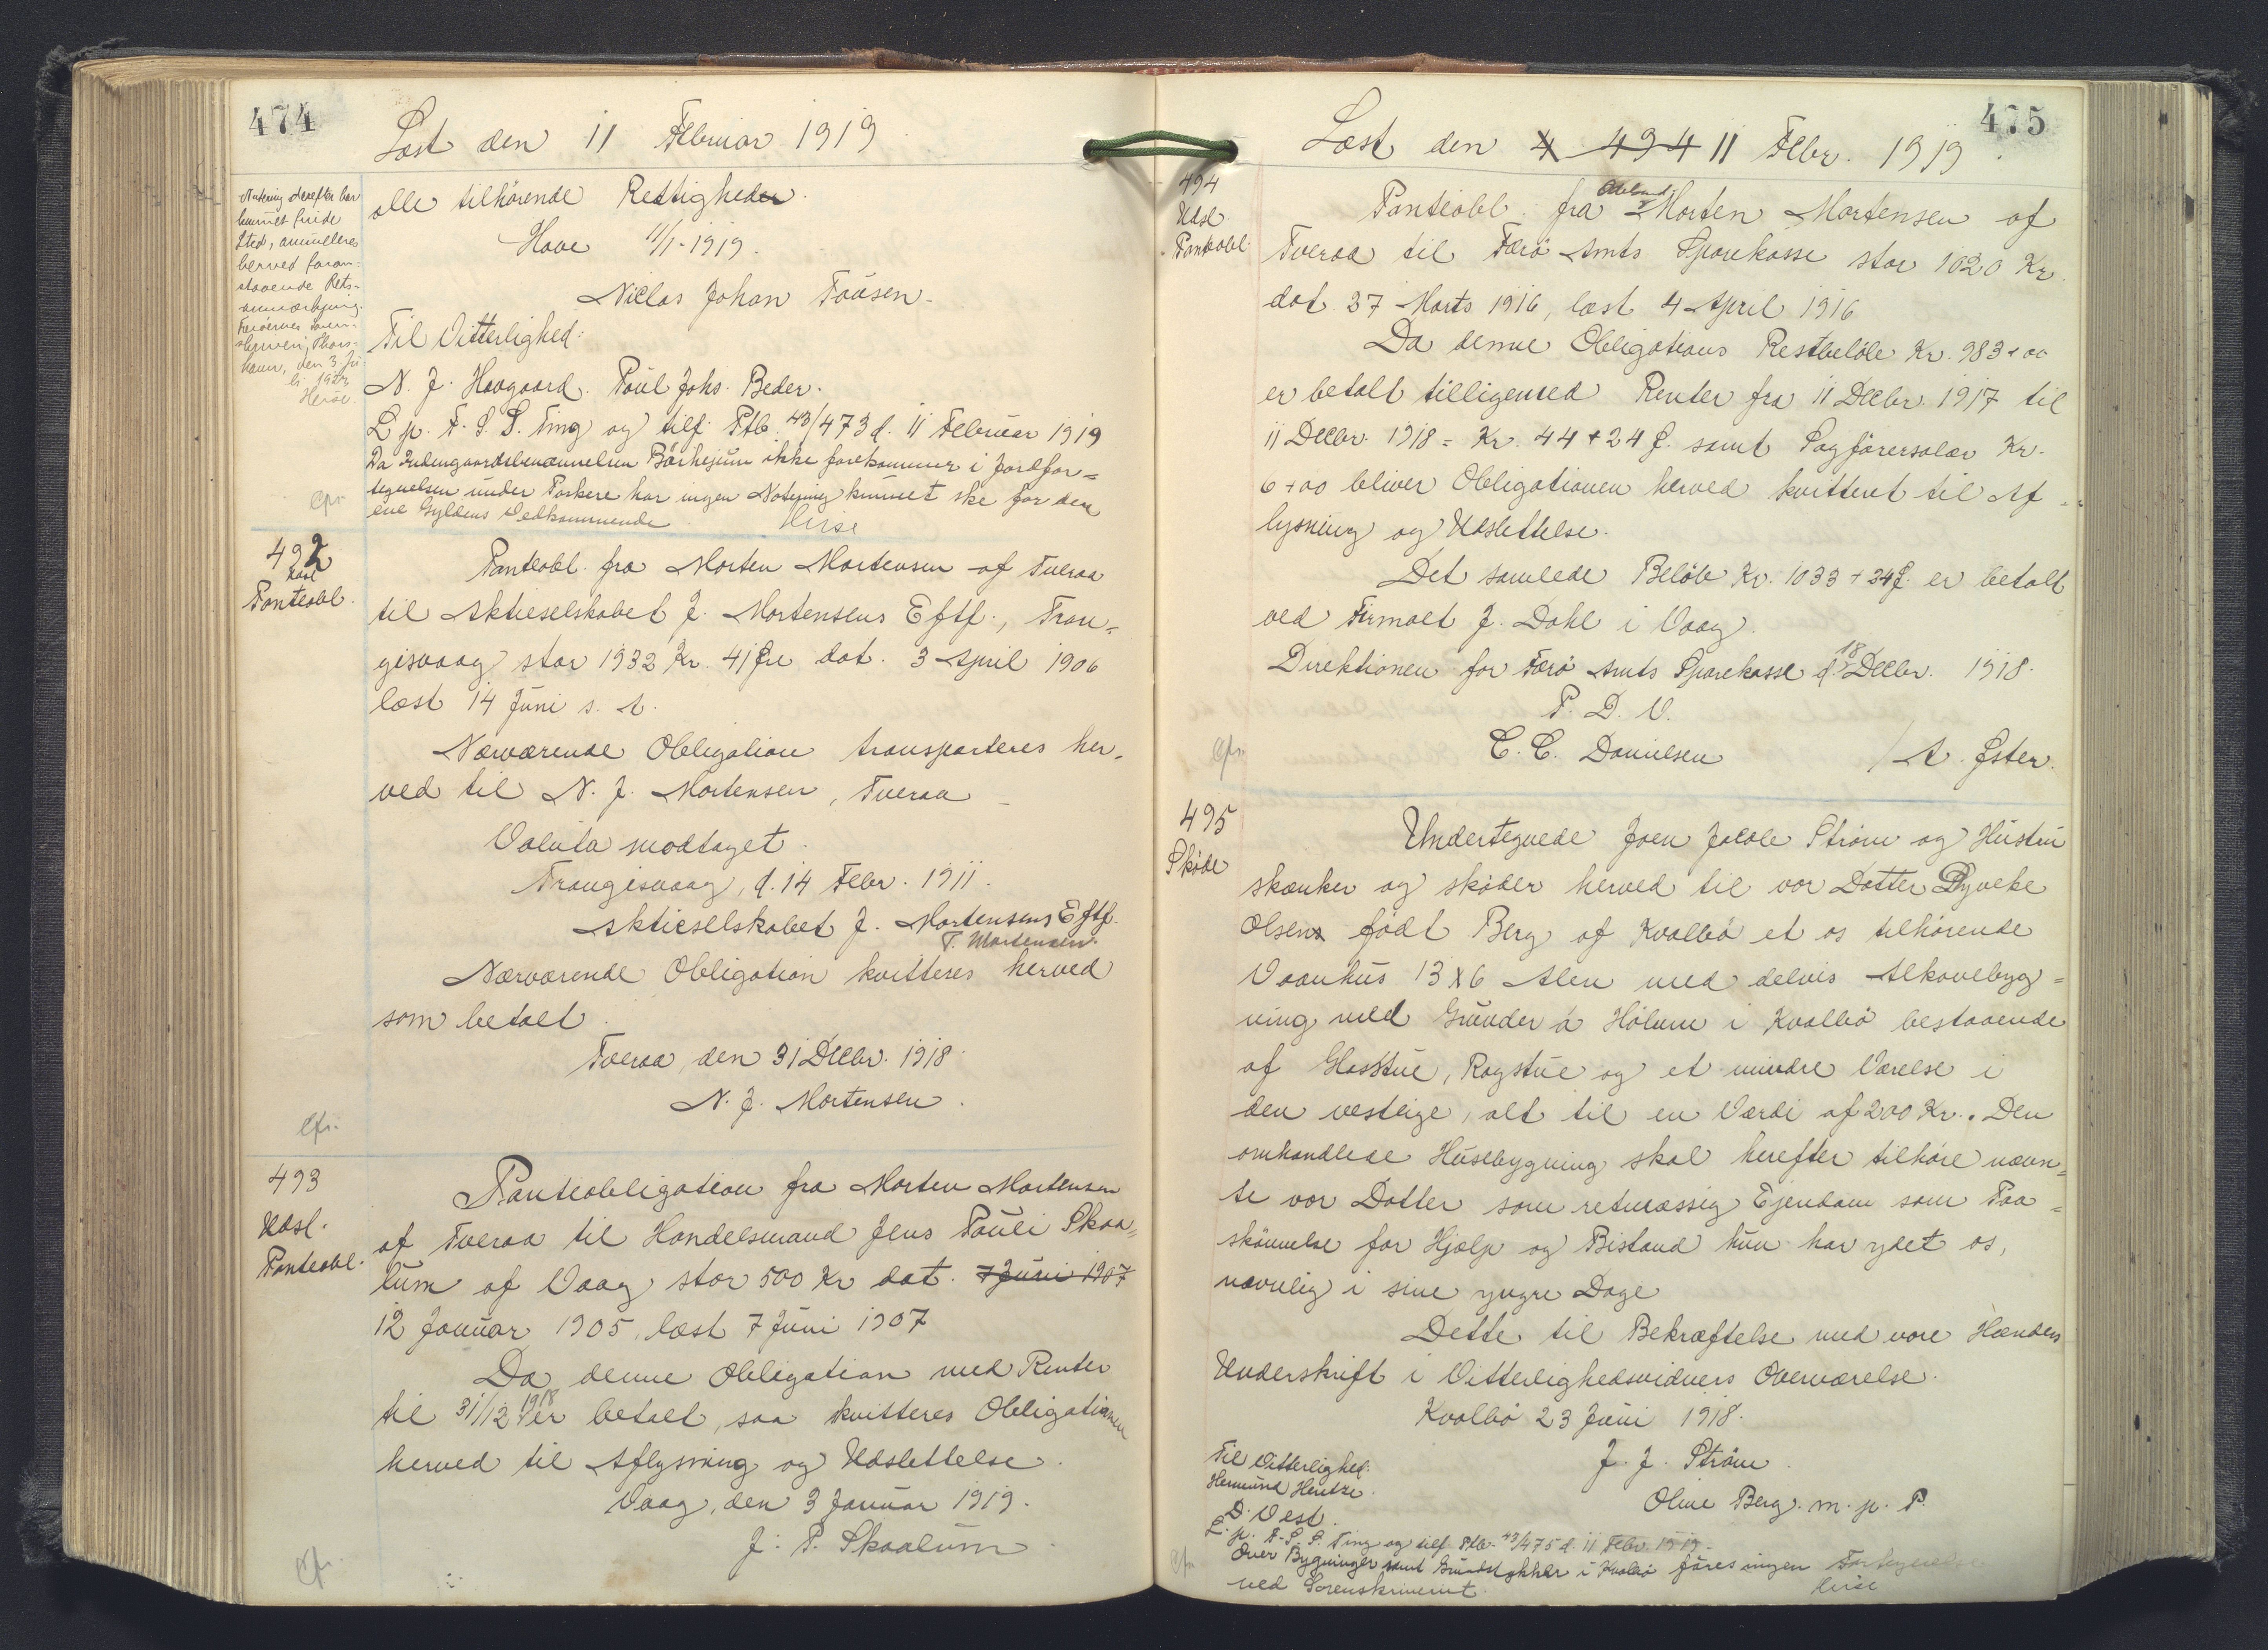 474
Læst den 11 Februar 1919
Notering derefter har
kunnet finde
Sted, annulleres
herved foran-
staaende Rets-
anmærkning.
Færøernes Soren-
skriveri, Thors-
havn, den 3. Ju-
li 1923
alle tilhörende Rettigheder.
Hove 11/1-1919.
Niclas Johan Pausen
Til Vitterlighed:
N. J. Hovgaard. Poul Johs. Beder.
L. p. F. S. S. Ting og tilf. Ptb. 43/473 d. 11 Februar 1919
Da Indengaardsbenævnelsen Bärhejum ikke forekommer i Jordfor=
tegnelsen under Porkere har ingen Notering kunnet ske for den
ene Gyldens Vedkommende
Cfr.
492
Udsl
Panteobl.
Panteobl. fra Morten Mortensen af Tveraa
til Aktieselskabet J. Mortensens Eftf., Tran-
gisvaag stor 1932 Kr. 41 Øre dat. 3 April 1906
læst 14 Juni s. A.
Nærværende Obligation transporteres her-
ved til N. J. Mortensen, Tveraa
Valuta modtaget.
Trangisvaag, d. 14 Febr. 1911.
Aktieselskabet J. Mortensens Eftf.
T. Mortensen.
Nærværende Obligation kvitteres herved
som betalt.
Tveraa, den 31 Decbr. 1918.
N. J. Mortensen.
Cfr.
493
Udsl.
Panteobl.
Panteobligation fra Morten Mortensen
af Tveraa til Handelsmand Jens Pauli Skaa=
lum af Vaag stor 500 Kr dat. 7 Juni 1907
12 Januar 1905, læst 7 Juni 1907
Da denne Obligation med Renter
til 31/12 1918 er betalt, saa kvitteres Obligationen
herved til Aflysning og Udslettelse.
Vaag, den 3 Januar 1919.
J. P. Skaalum
Cfr.
475
Læst den 4 494 11 Febr. 1919.
494
Udsl.
Panteobl.
Panteobl. fra Morten Mortensen af
Tveraa til Færö Amts Sparekasse stor 1020 Kr.
dat. 37 Marts 1916, læst 4 April 1916
Da denne Obligations Restbelöb Kr. 983+00
er betalt tilligemed Renter fra 11 Decbr. 1917 til
11 Decbr. 1918 = Kr. 44+24 Ø. samt Sagförersalær Kr.
6+00 bliver Obligationen herved kvitteret til Af=
lysning og Udslettelse.
Det samlede Belöb Kr. 1033+24 Ø. er betalt
ved Firmaet J. Dahl i Vaag.
Direktionen for Færö Amts Sparekasse d. 18 Decbr. 1918.
P. D. V.
C. C. Danielsen / A. Øster.
Cfr.
495
Sköde
Undertegnede Joen Jacob Ström og Hustru
skænker og sköder herved til vor Datter Dyveke
Olsen födt Berg af Kvalbö et os tilhörende
Vaanhus 13 x 6 Alen med delvis Alkovebyg=
ning med Grunder á Hólum i Kvalbö bestaaende
af Glasstue, Rogstue og et mindre Værelse i
den vestlige, alt til en Værdi af 200 Kr. Den
omhandlede Husebygning skal herefter tilhöre nævn=
te vor Datter som retmæssig Ejendom som Paa=
skönnelse for Hjælp og Bistand hun har ydet os,
navnlig i sine yngre Dage
Dette til Bekræftelse med vore Hænders
Underskrift i Vitterlighedsvidners Overværelse.
Kvalbö 23 Juni 1918.
J. J. Ström.
Oline Berg. m. p. P.
Til Vitterlighed:
Hermund Hentze.
D. Vest.
L. p. F. S. S. Ting og tilf. Ptb. 43/475 d. 11 Febr. 1919.
Over Bygninger samt Grundstykker i Kvalbö föres ingen Fortegnelse
ved Sorenskriveriet.
Cfr.